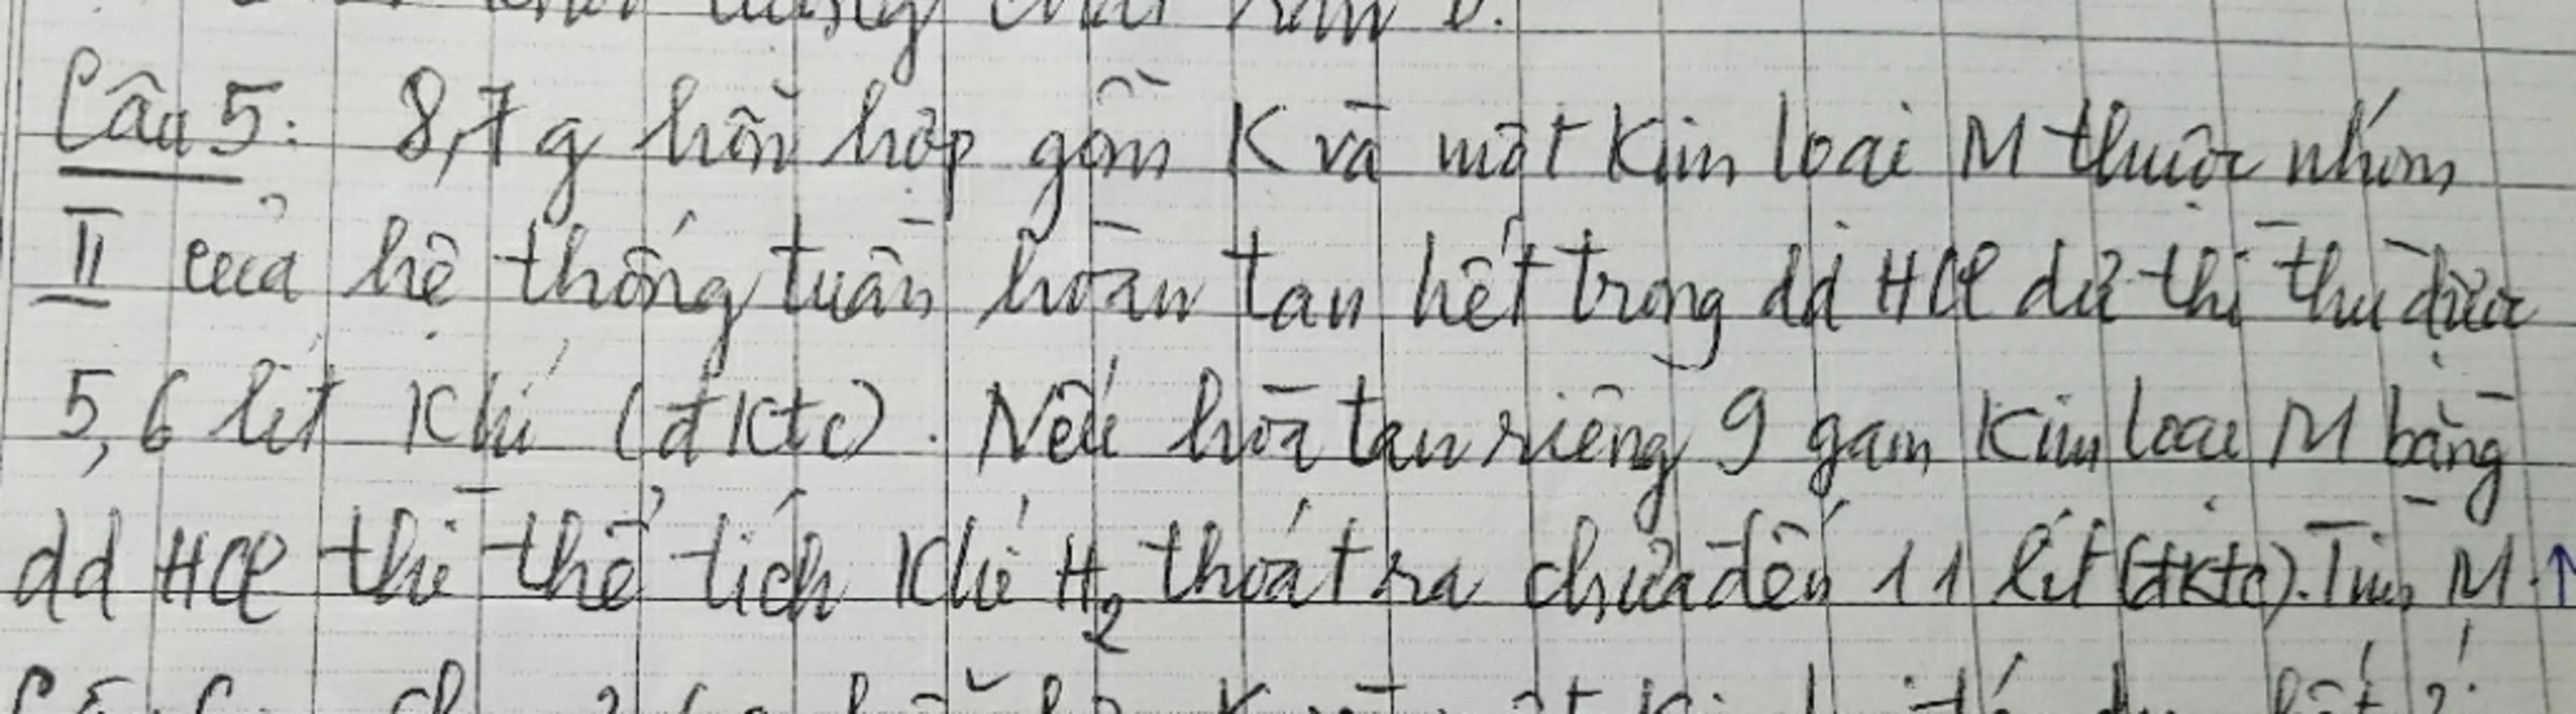 Câu 5: 8,7g hỗn hợp gồm K và một kim loại M thuộc nhóm
II của hệ thống tuần hoàn tan hết trong dd HCl dư thì thu được
5,6 lít khí (đktc). Nếu hòa tan riêng 9 gam kim loại M bằng
dd HCl thì thể tích khí H₂ thoát ra chưa đến 11 lít (đktc). Tìm M.